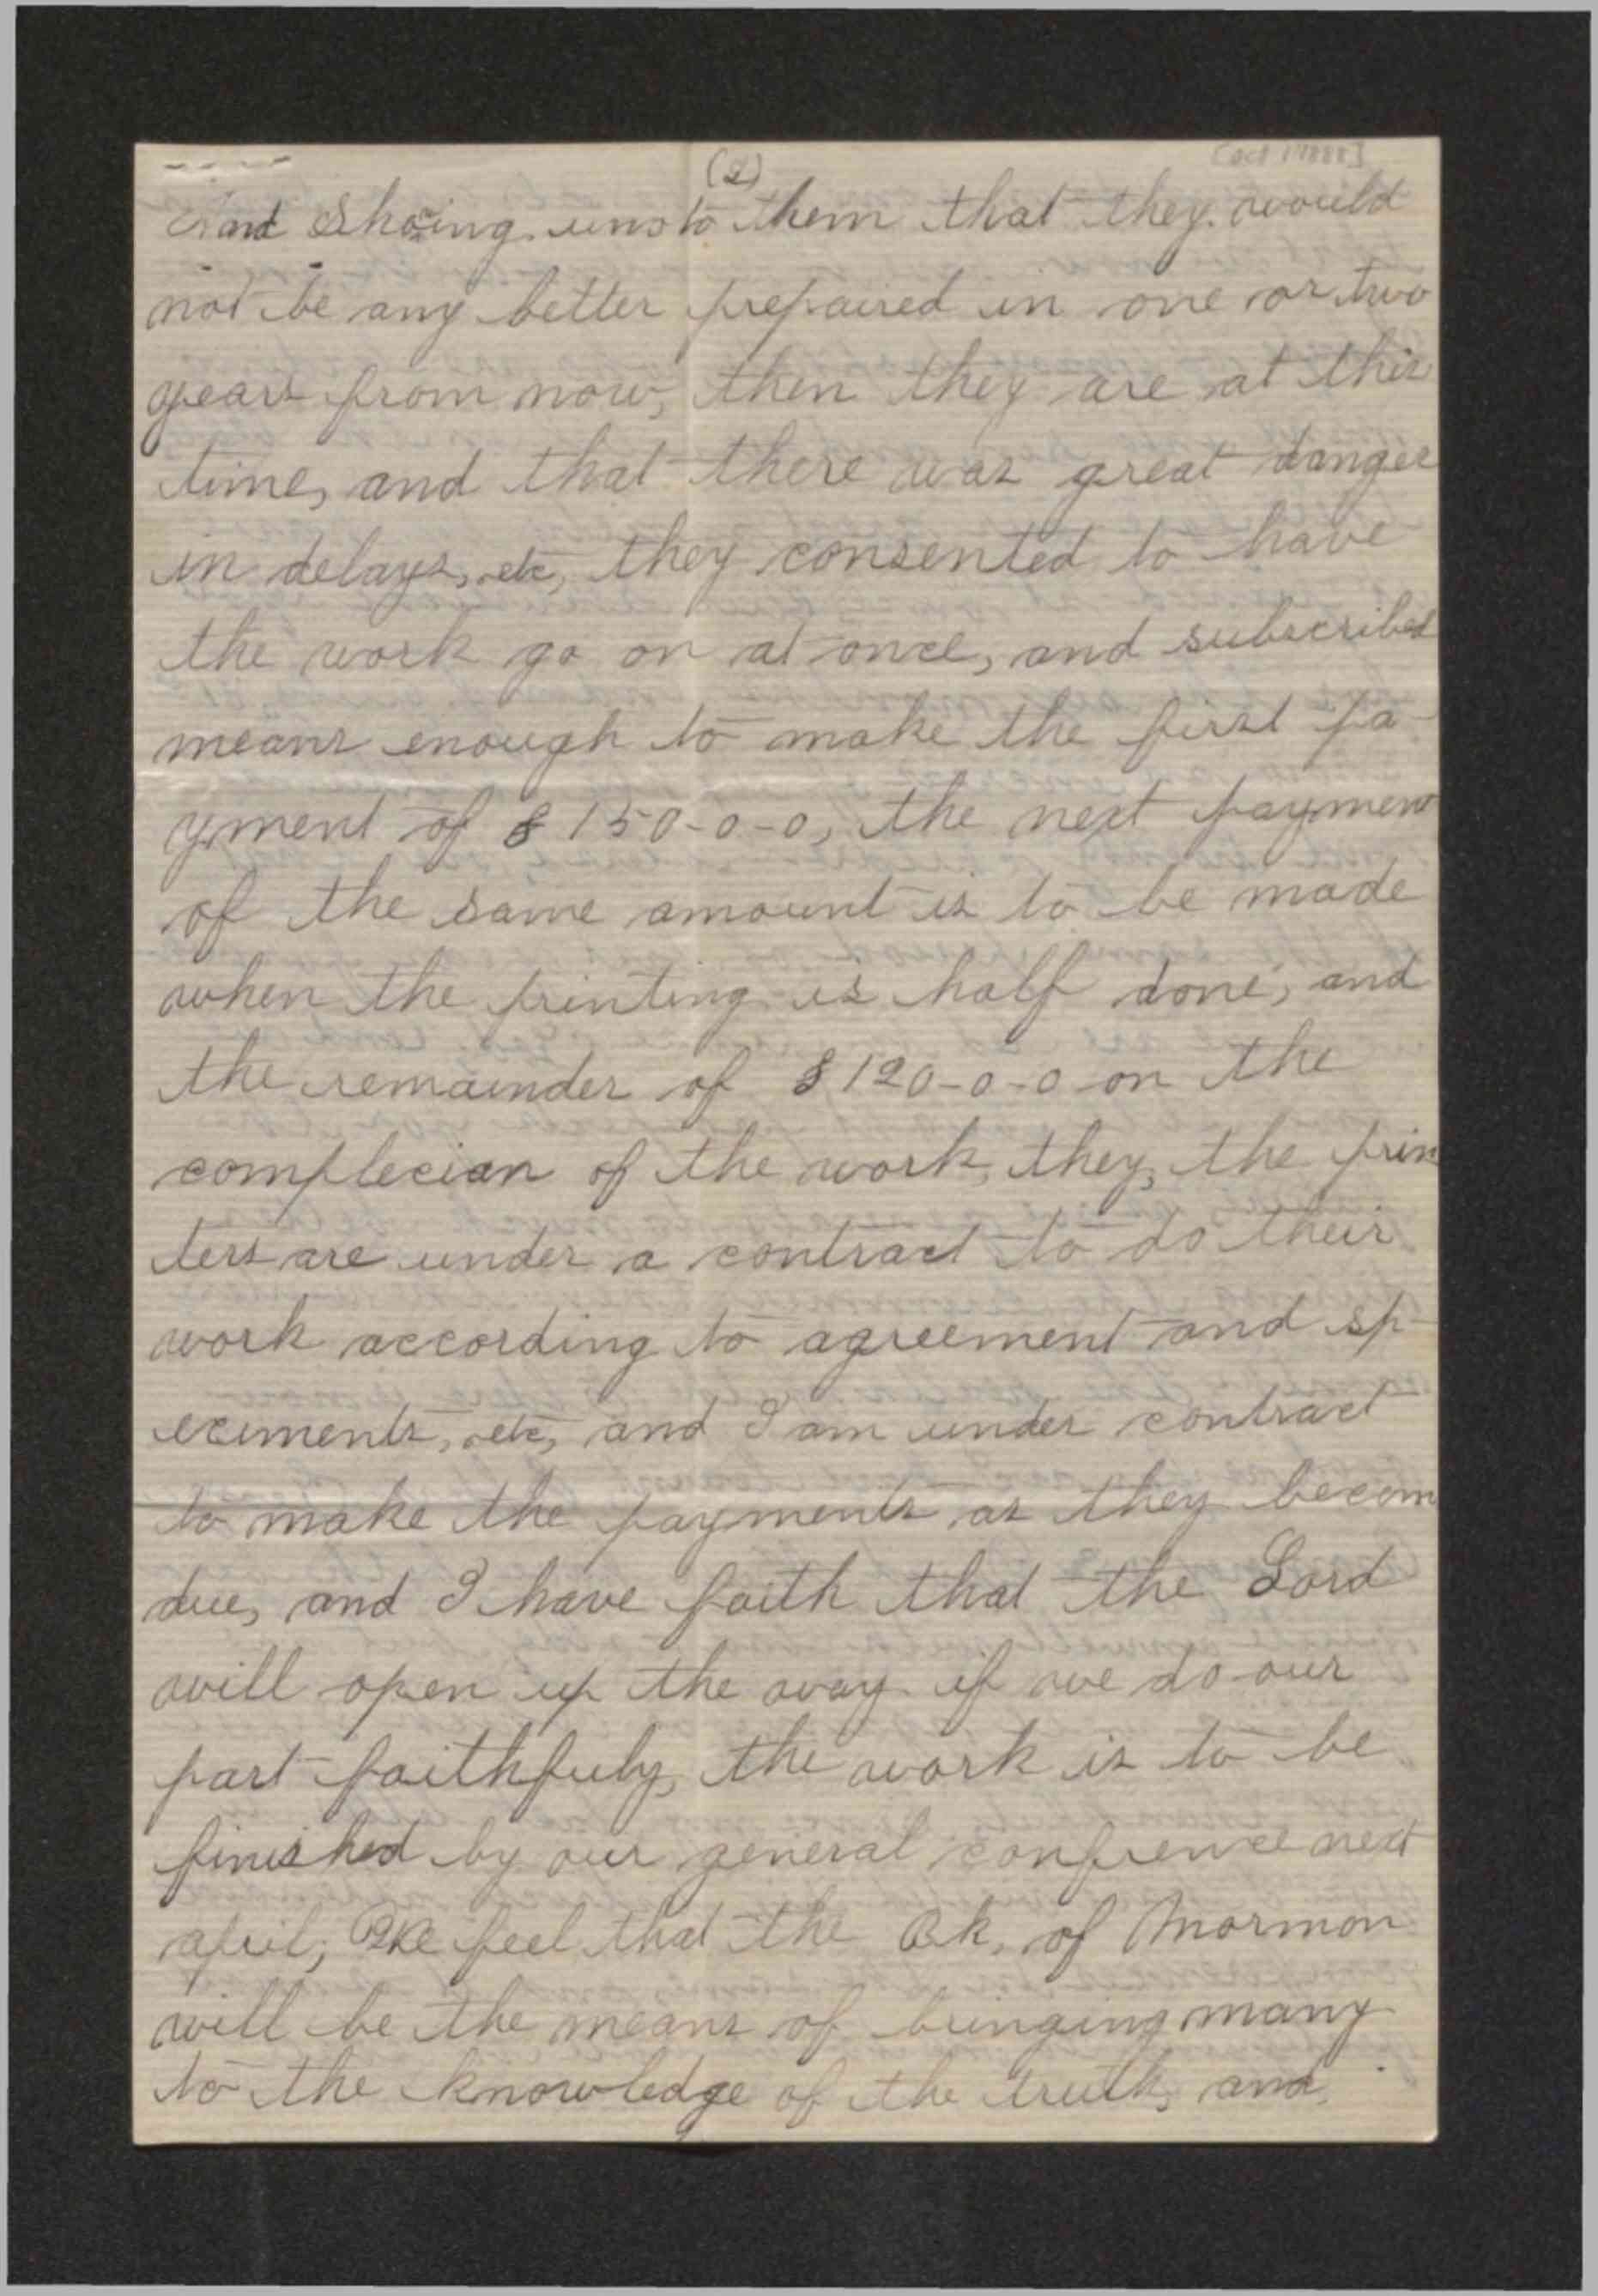 (2)
and Shoing unto them that they would
not be any better prepaired in one or two
years from now, then they are at this
time, and that there was great danger
in delays, etc, they consented to have
the work go on at once, and subscribed
means enough to make the first pa-
yment of $150-0-0, the next payment
of the same amount is to be made
when the printing is half done, and
the remainder of $120-0-0 on the
complecian of the work, they, the prin
ters are under a contract to do their
work according to agreement and sp-
eciments, etc, and I am under contract
to make the payments as they becom
due, and I have faith that the Lord
will open up the way if we do our
part faithfuly, the work is to be
finished by our general confrence next
april, We feel that the Bk. of Mormon
will be the means of bringing many
to the knowledge of the truth, and